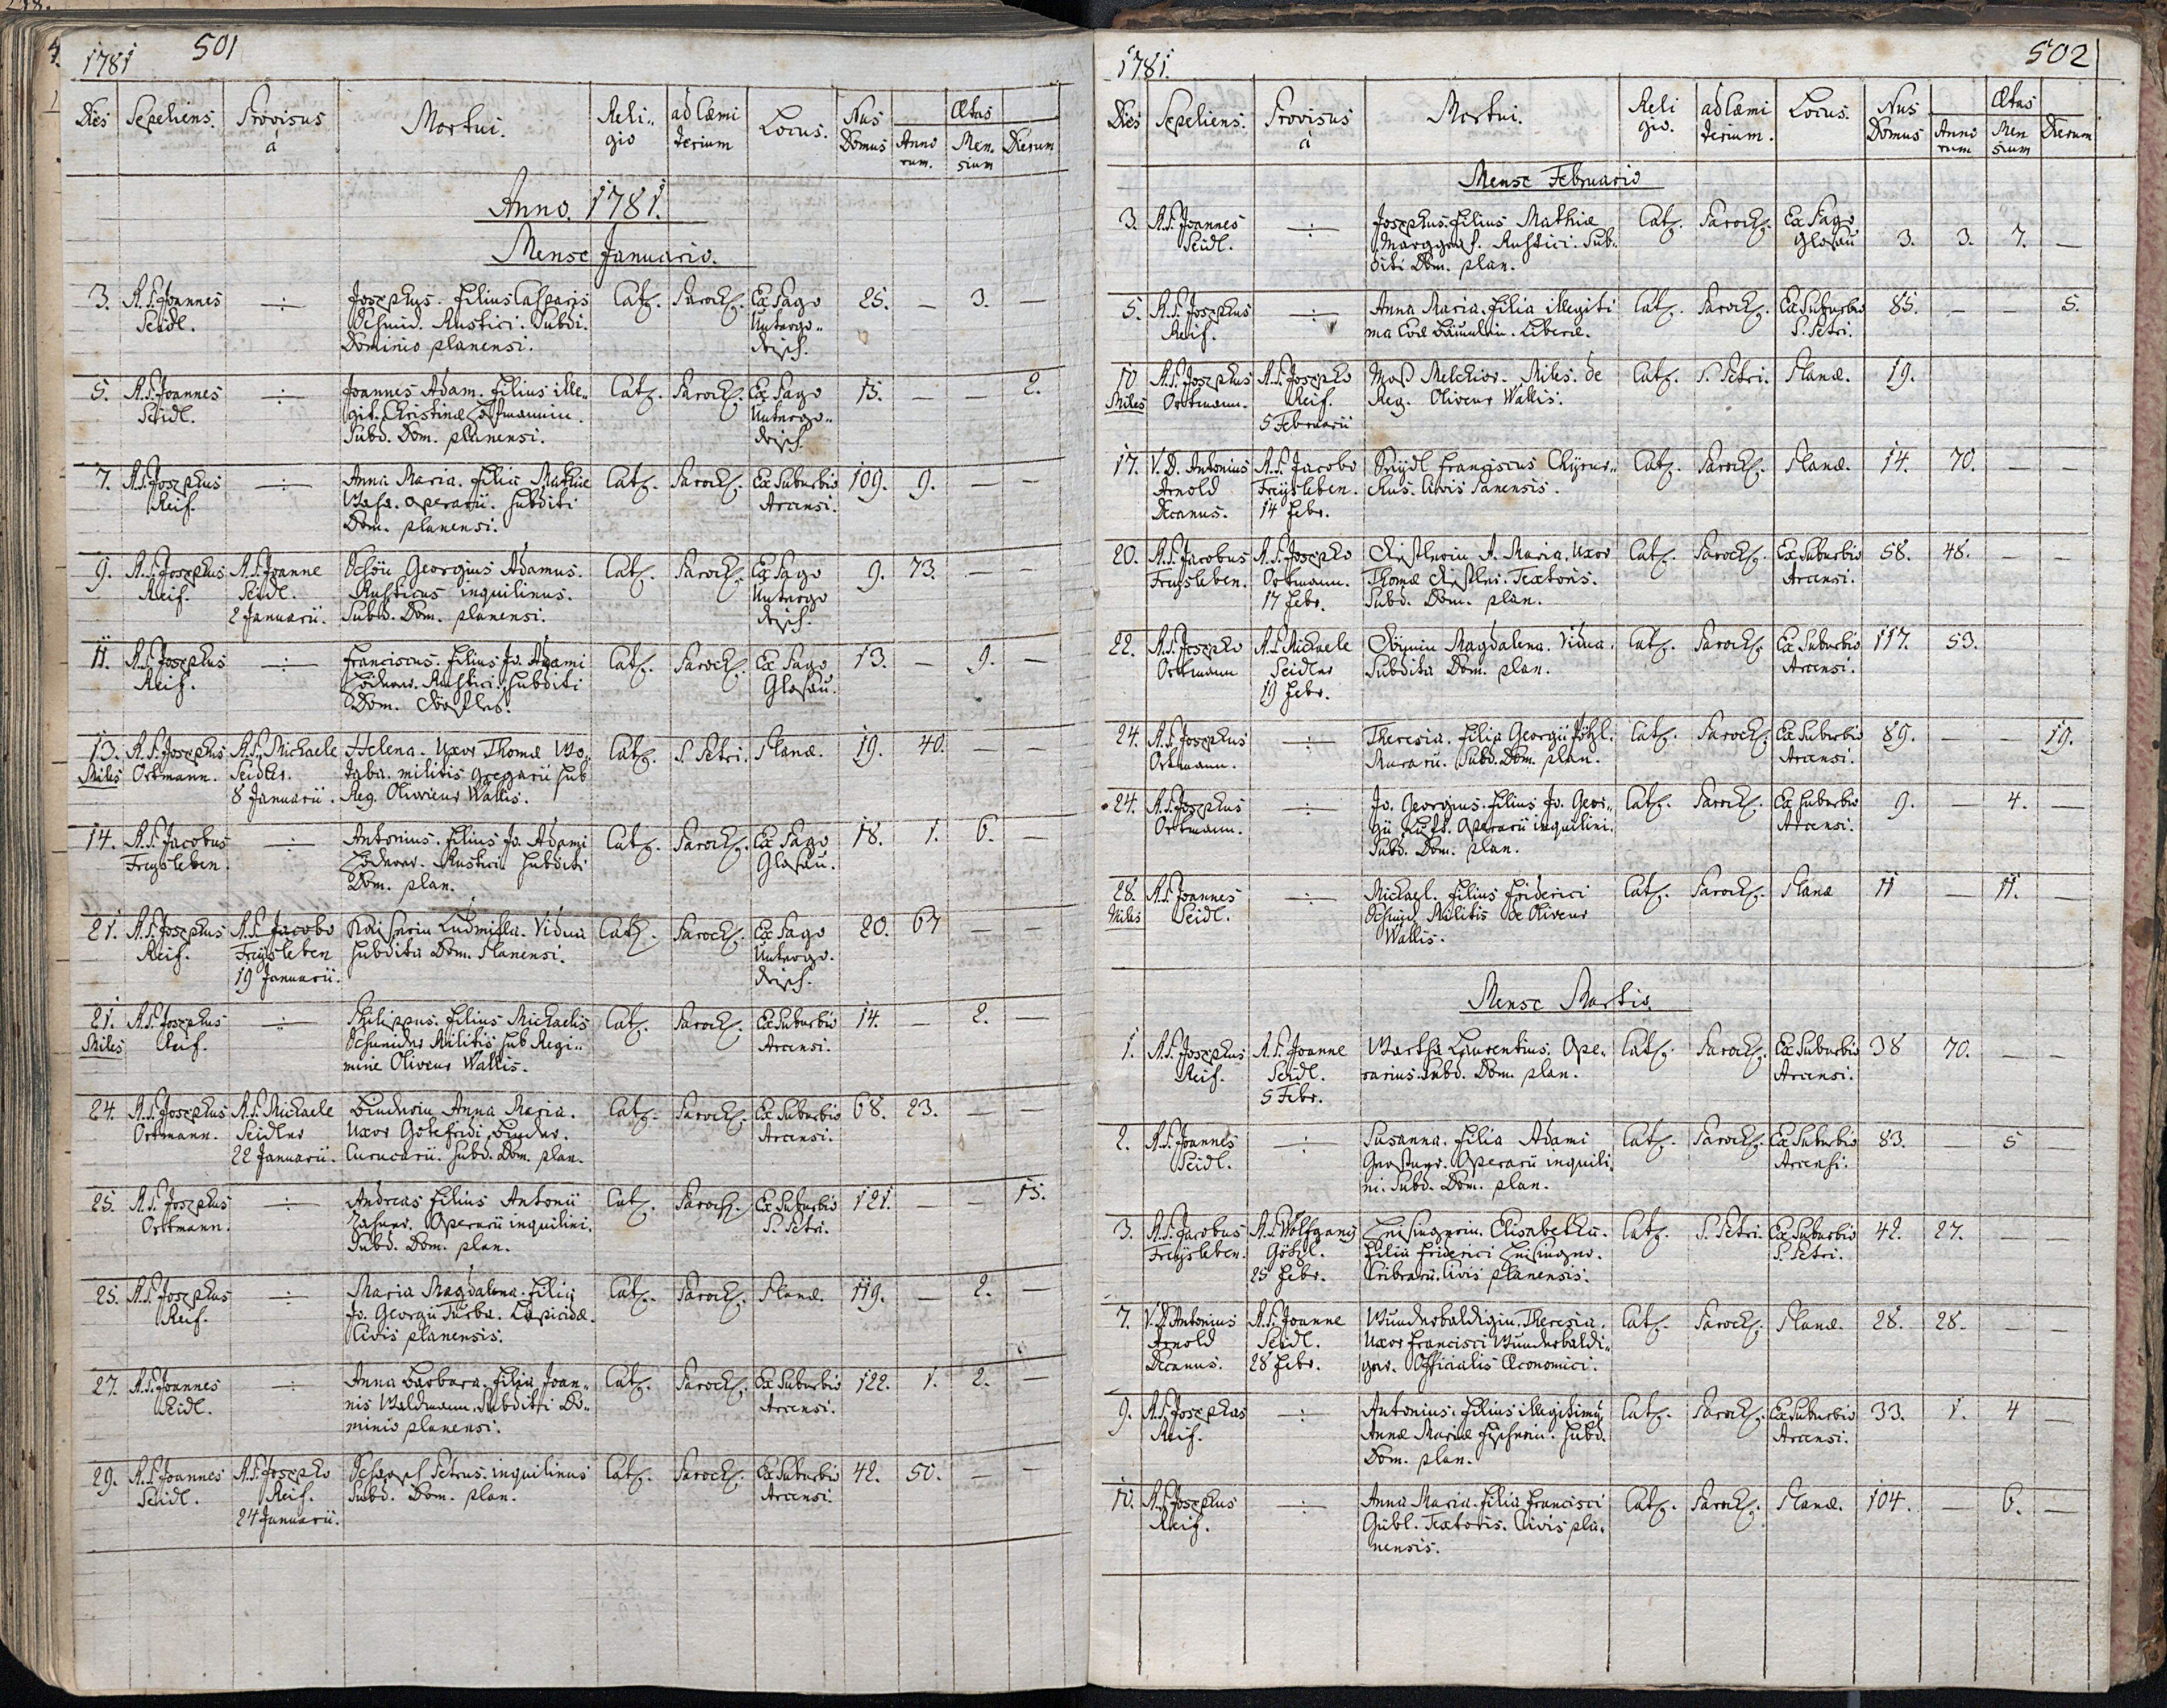 1781 501
Dies Sepeliens. Provisus à Mortui. Reli- gio ad Cæmi terium Locus. Nus Domus Ætas Anno rum. Men- sium Dierum
Anno. 1781.
Mense Januario.
3. A.P. Joannes Seidl. Josephus. filius Casparis Cath. Paroch. Ex Pago 25. — 3. —
Schmid. Rustici. Subdi. Untergo-
Dominio planensi. drisch.
5. A.P. Joannes Seidl. Joannes Adam. filius ille- Cath. Paroch. Ex Pago 15. — — 2.
git. Christinæ Subd. Dom. planensi. Untergo- drisch.
7. A.P. Josephus Reif. Anna Maria. filia Mathiæ Cath. Paroch. Ex Suburbio 109. 9. — —
operarii. Subditi Arcensi.
Dom. planensi.
9. A.P. Josephus Reif. A.P. Joanne Seidl. 2 Januarii. Georgius Adamus. Cath. Paroch. Ex Pago 9. 73. — —
Rusticus inquilinus. Untergo
Subd. Dom. planensi. drisch.
11. A.P. Josephus Reif. Franciscus. filius Jo. Adami Cath. Paroch. Ex Pago 13. — 9. —
Rustici. Subditi Glasau.
Dom.
13. Miles A.P. Josephus Ortmann. A.P. Michaele Seidler. 8 Januarii. Helena. Uxor Thomæ Cath. S. Petri. Planæ. 19. 40. — —
militis gregarii sub
Reg. Olivieur Wallis.
14. A.P. Jacobus Freysleben. Antonius. filius Jo. Adami Cath. Paroch. Ex Pago 18. 1. 6. —
Rustici Subditi Glasau.
Dom. plan.
21. A.P. Josephus Reif. A.P. Jacobo Freysleben 19 Januarii. Ludmilla. Vidua Cath. Paroch. Ex Pago 20. 67 — —
Subdita Dom. Planensi. Untergo- drisch.
21. Miles A.P. Josephus Reif. Philippus. filius Michaelis Cath. Paroch. Ex Suburbio 14. — 2. —
Schneider Militis sub Regi- Arcensi.
mine Oliveur Wallis.
24. A.P. Josephus Ortmann. A.P. Michaele Seidler 22 Januarii. Binderin Anna Maria. Cath. Paroch. Ex Suburbio 68. 23. — —
Uxor Gottefridi Binder. Arcensi.
Subd. Dom. plan.
25. A.P. Josephus Ortmann. Andreas filius Antonii Cath. Paroch. Ex Suburbio 121. — — 15.
Operarii inquilini. S. Petri.
Subd. Dom. plan.
25. A.P. Josephus Reif. Maria Magdalena. Filia Cath. Paroch. Planæ. 119. — 2. —
Jo. Georgii Lapicidæ.
Civis planensis.
27. A.P. Joannes Seidl. Anna Barbara. filia Joan- Cath. Paroch. Ex Suburbio 122. 1. 2. —
nis Waldmann. Subditi Do- Arcensi.
minio planensi.
29. A.P. Joannes Seidl. A.P. Josepho Reif. 24 Januarii. Petrus. inquilinus Cath. Paroch. Ex Suburbio 42. 50. — —
Subd. Dom. plan. Arcensi.
1781. 502
Dies Sepeliens. Provisus à Mortui. Reli gio. ad Cæmi terium. Locus. Nus Domus Ætas Anno rum Men sium Dierum
Mense Februario
3. A.P. Joannes Seidl. Josephus. filius Mathiæ Cath. Paroch. Ex Pago Glasau 3. 3. 7. —
Marggraf. Rustici. Sub-
diti Dom. plan.
5. A.P. Josephus Reif. Anna Maria. filia illegiti Cath. Paroch. Ex Suburbio 85. — — 5.
ma Evæ Liberæ. S. Petri.
10 Miles A.P. Josephus Ortmann. A.P. Josepho Reif. 5 Februarii Melchior. Miles. de Cath. S. Petri. Planæ. 19.
Reg. Oliveur Wallis.
17. V.D. Antonius Arnold Decanus. A.P. Jacobo Freysleben. 14 febr. Seydl Franciscus Chyrur- Cath. Paroch. Planæ. 14. 70. — —
chus. Civis Panensis.
20. A.P. Jacobus Freysleben. A.P. Josepho Ortmann. 17 febr. A. Maria. Uxor Cath. Paroch. Ex Suburbio 58. 48. — —
Thomæ Textoris. Arcensi.
Subd. Dom. plan.
22. A.P. Josepho Ortmann A.P. Michaele Seidler 19 febr. Magdalena. Vidua. Cath. Paroch. Ex Suburbio 117. 53.
Subdita Dom. plan. Arcensi.
24. A.P. Josephus Ortmann. Theresia. filia Georgii Cath. Paroch. Ex Suburbio 89. — 19.
Murarii. Subd. Dom. plan. Arcensi.
24. A.P. Josephus Ortmann. Jo. Georgius. filius Jo. Geor- Cath. Paroch. Ex Suburbio 9. — 4. —
gii operarii inquilini. Arcensi.
Subd. Dom. plan.
28. Miles A.P. Joannes Seidl. Michael. filius Friderici Cath. Paroch. Planæ 11 — 11. —
Schmid Militis de Oliveur
Wallis.
Mense Martio.
1. A.P. Josephus Reif. A.P. Joanne Seidl. 5 Febr. Laurentius. Ope- Cath. Paroch. Ex Suburbio 38 70. — —
rarius. Subd. Dom. plan. Arcensi.
2. A.P. Joannes Seidl. Susanna. filia Adami Cath. Paroch. Ex Suburbio 83. 5
Operarii inquili- Arcensi.
ni. Subd. Dom. plan.
3. A.P. Jacobus Freysleben. A.P. Wolfgang Götzl. 25 febr. Elisabetha. Cath. S. Petri. Ex Suburbio 42. 27.
filia Friderici S. Petri.
Cribrarii. Civis planensis.
7. V.D. Antonius Arnold Decanus. A.P. Joanne Seidl. 28 febr. Wunderbaldigin. Theresia. Cath. Paroch. Planæ. 28. 28. — —
Uxor Francisci Wunderbaldi-
ger. Officialis Œconomici.
9. A.P. Josephus Reif. Antonius. filius illegitimus Cath. Paroch. Ex Suburbio 33. 1. 4 —
Annæ Mariæ Subd. Arcensi.
Dom. plan.
10. A.P. Josephus Reif. Anna Maria. filia Francisci Cath. Paroch. Planæ. 104. — 6. —
Gübl. Textoris. Civis pla-
nensis.